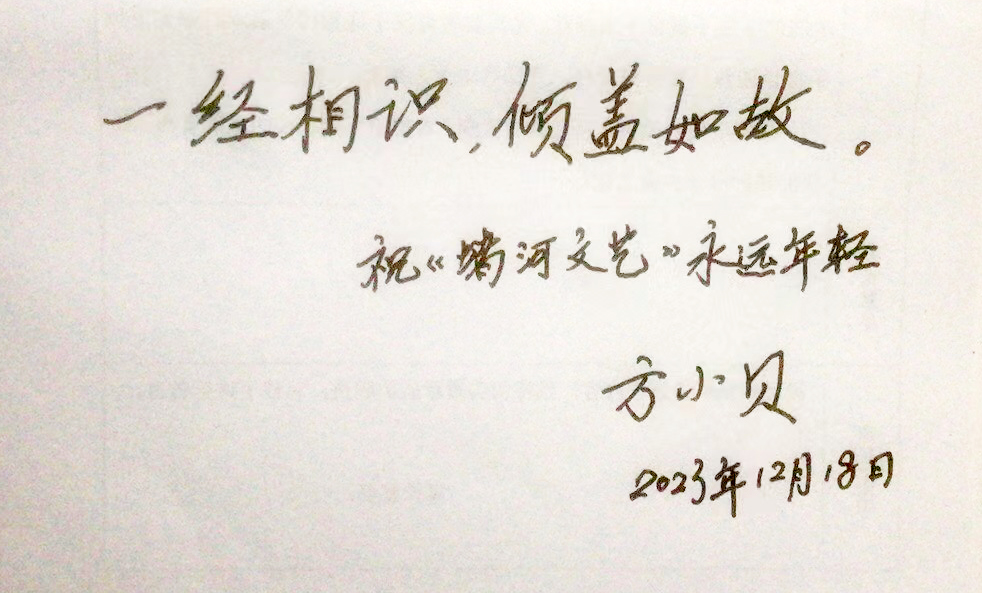 一经相识,倾盖如故。
祝《塆河文艺》永远年轻
方小贝
2023年12月18日